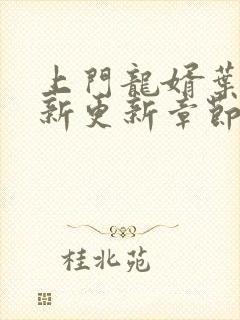 上門龍婿葉
新更新章節
桂北苑